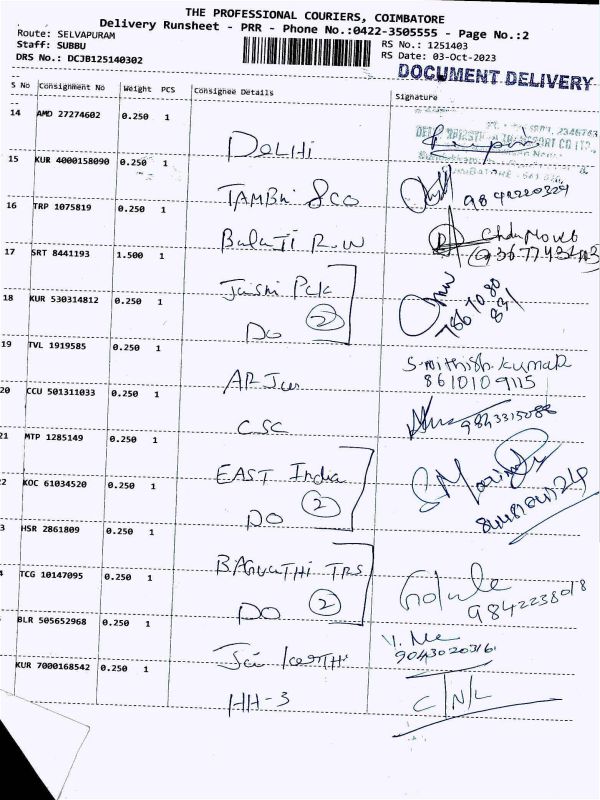 THE PROFESSIONAL COURIERS, COIMBATORE
Delivery Runsheet - PRR - Phone No.:0422-3505555 - Page No.:2
Route: SELVAPURAM
Staff: SUBBU RS No.: 1251403
DRS No.: DCJB125140302 RS Date: 03-Oct-2023
DOCUMENT DELIVERY
S No Consignment No Weight PCS Consignee Details Signature
14 AMD 27274602 0.250 1
DELHI
15 KUR 4000158090 0.250 1
TAMBI & CO
16 TRP 1075819 0.250 1
BalaJi R.W
17 SRT 8441193 1.500 1
Jaishi Pck
18 KUR 530314812 0.250 1
DO 2
19 TVL 1919585 0.250 1
ARJun
S.mithish.kumar
8610109115
20 CCU 501311033 0.250 1
CSC
9843315088
21 MTP 1285149 0.250 1
EAST India
22 KOC 61034520 0.250 1
DO 2
3 HSR 2861809 0.250 1
BAGVATHI TRS
4 TCG 10147095 0.250 1
DO 2
Gokula
9842238018
BLR 505652968 0.250 1
Jai KeerTHi
9043020316
KUR 7000168542 0.250 1
HH-3
C/N/L